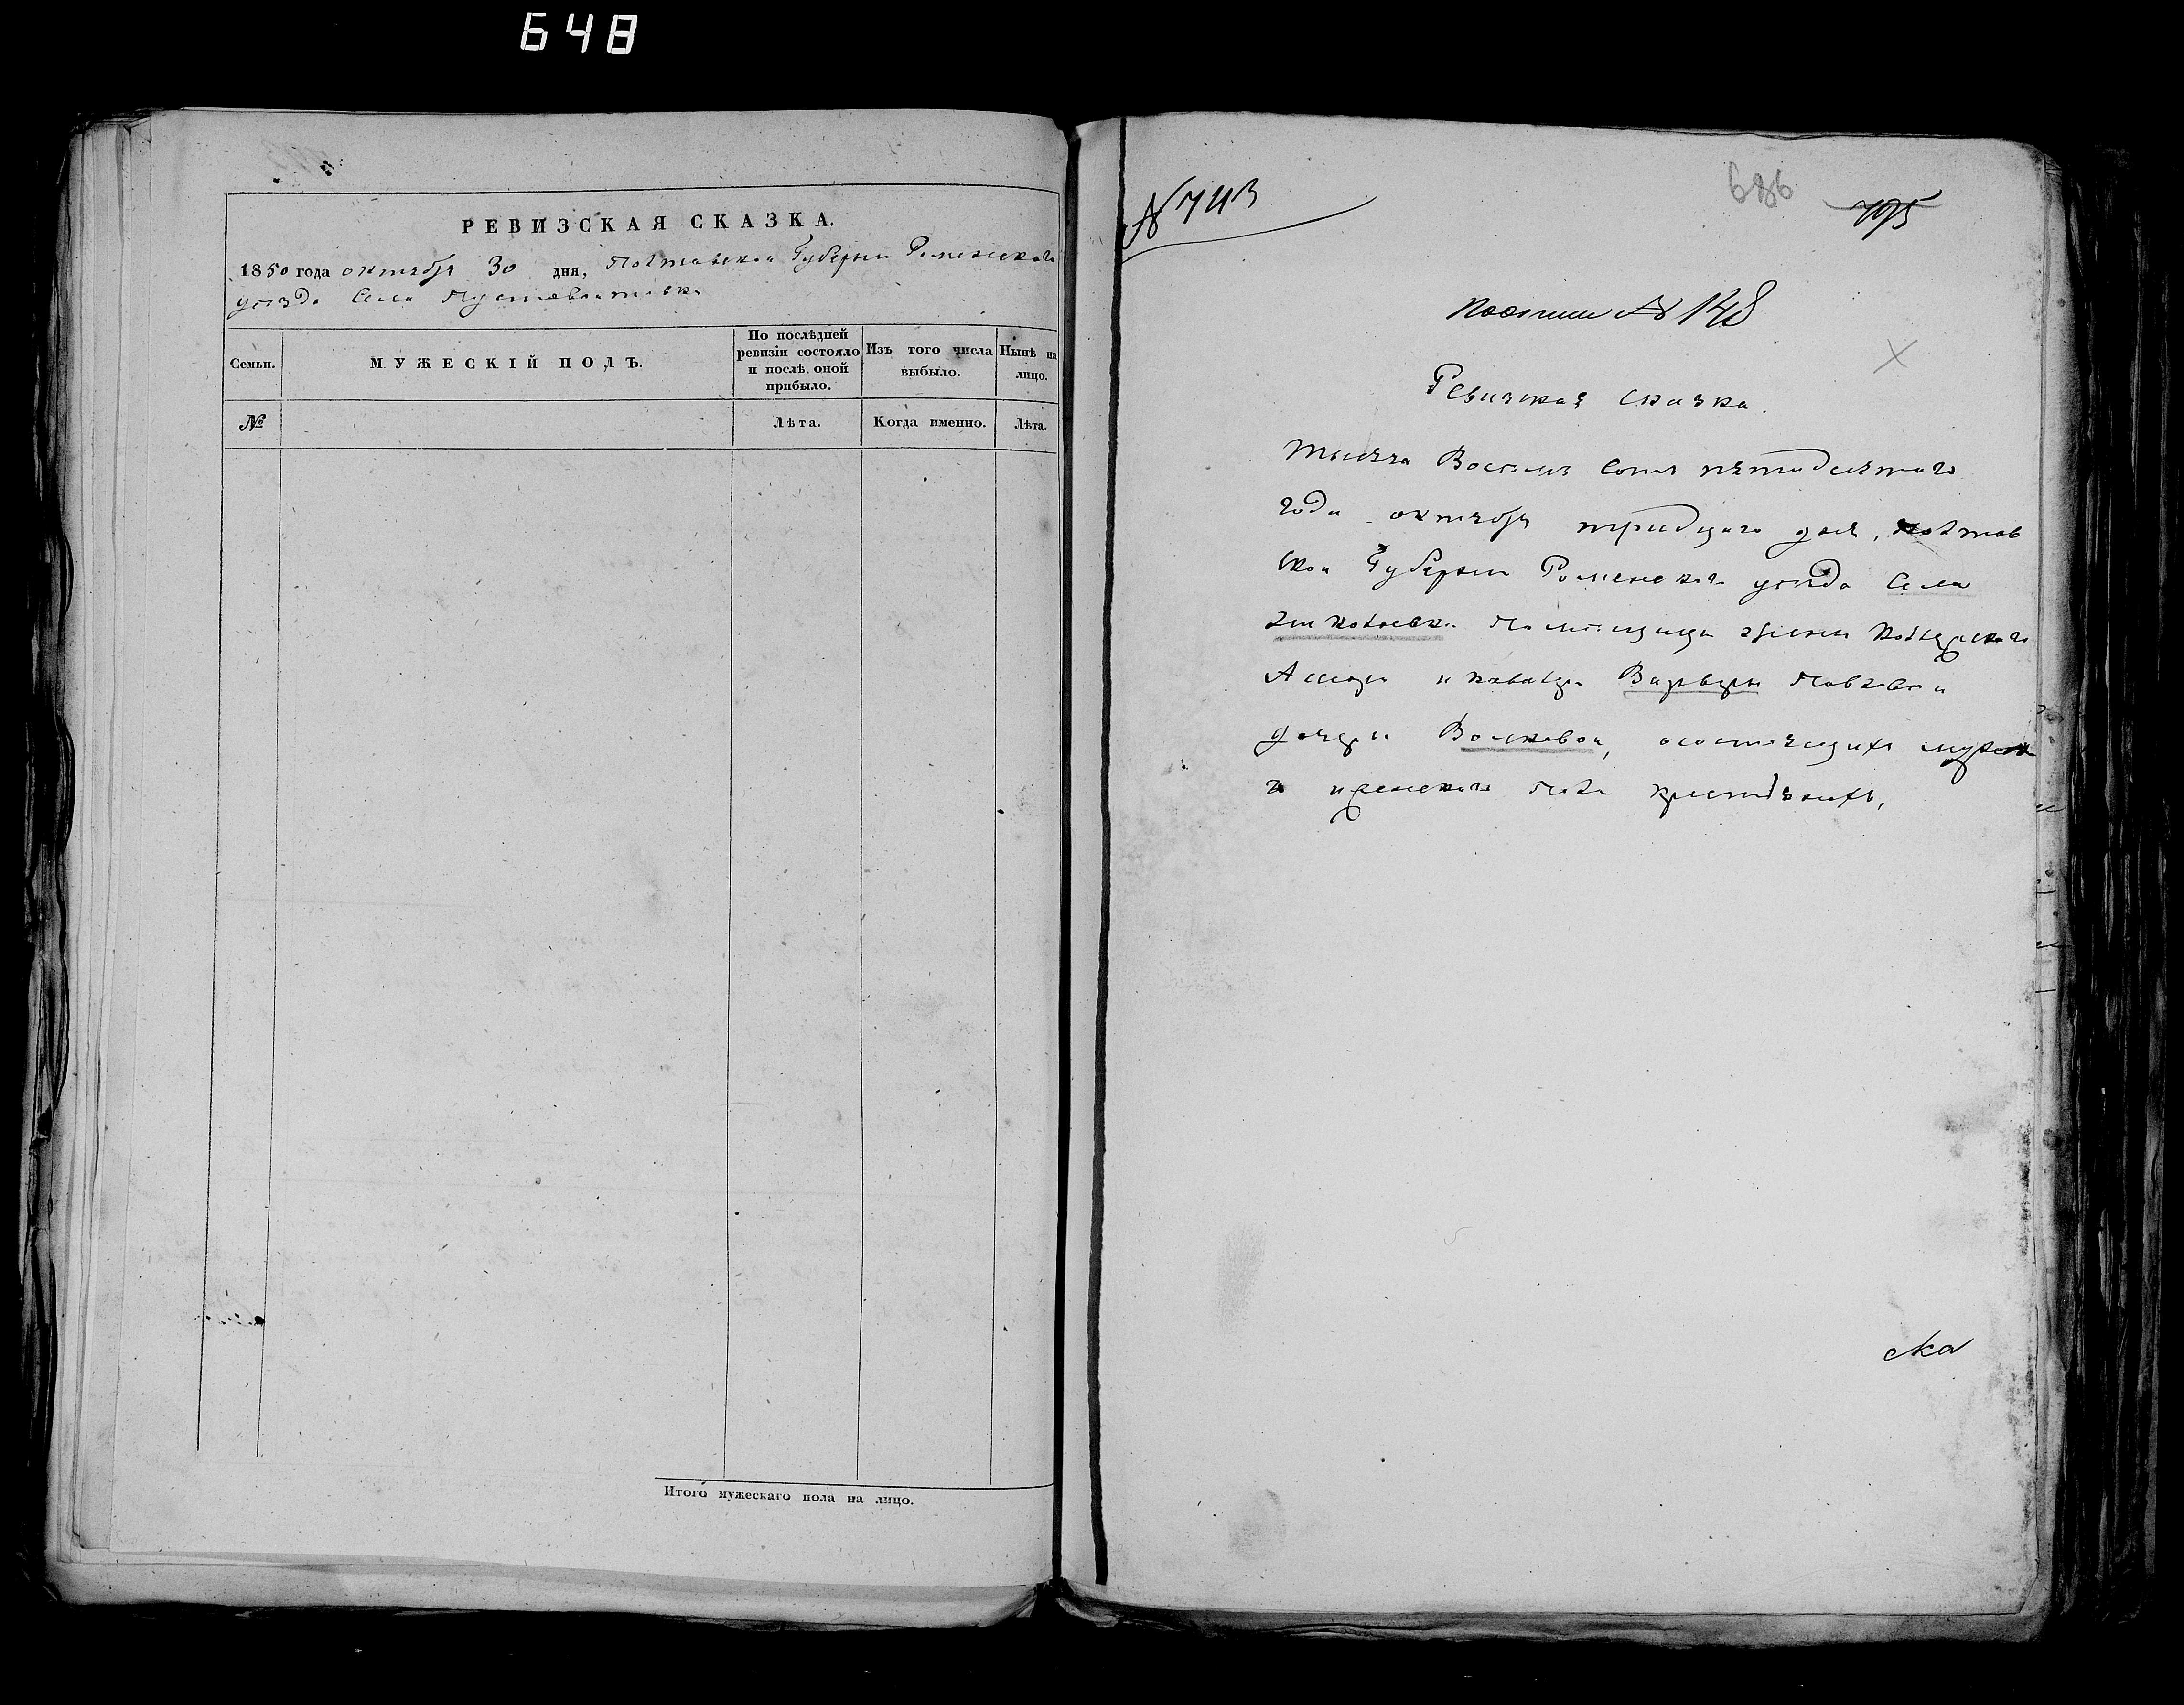 648
РЕВИЗСКАЯ СКАЗКА.
1850 года октября 30 дня, Полтавской Губернии Роменскаго
уезда Села Пустовойтовки
Семьи.
МУЖЕСКІЙ ПОЛЪ.
По послѣдней ревизіи состояло и послѣ оной прибыло.
Изъ того числа выбыло.
Нынѣ на лицо.
№
Лѣта.
Когда именно.
Лѣта.
Итого мужескаго пола на лицо.
N 743
686
795
по описи № 148
Ревизская сказка.
Тысяча Восемь Сотъ пятидесятаго
года октября тридцатаго дня, полтав
ской Губернии Роменскаго уезда Села
Помещицы жены Колежскаго
Асесора и кавалера Варвары Павловой
дочери Волковой, о состоящихъ мужеска
го и женскаго пола крестьянахъ,
ска